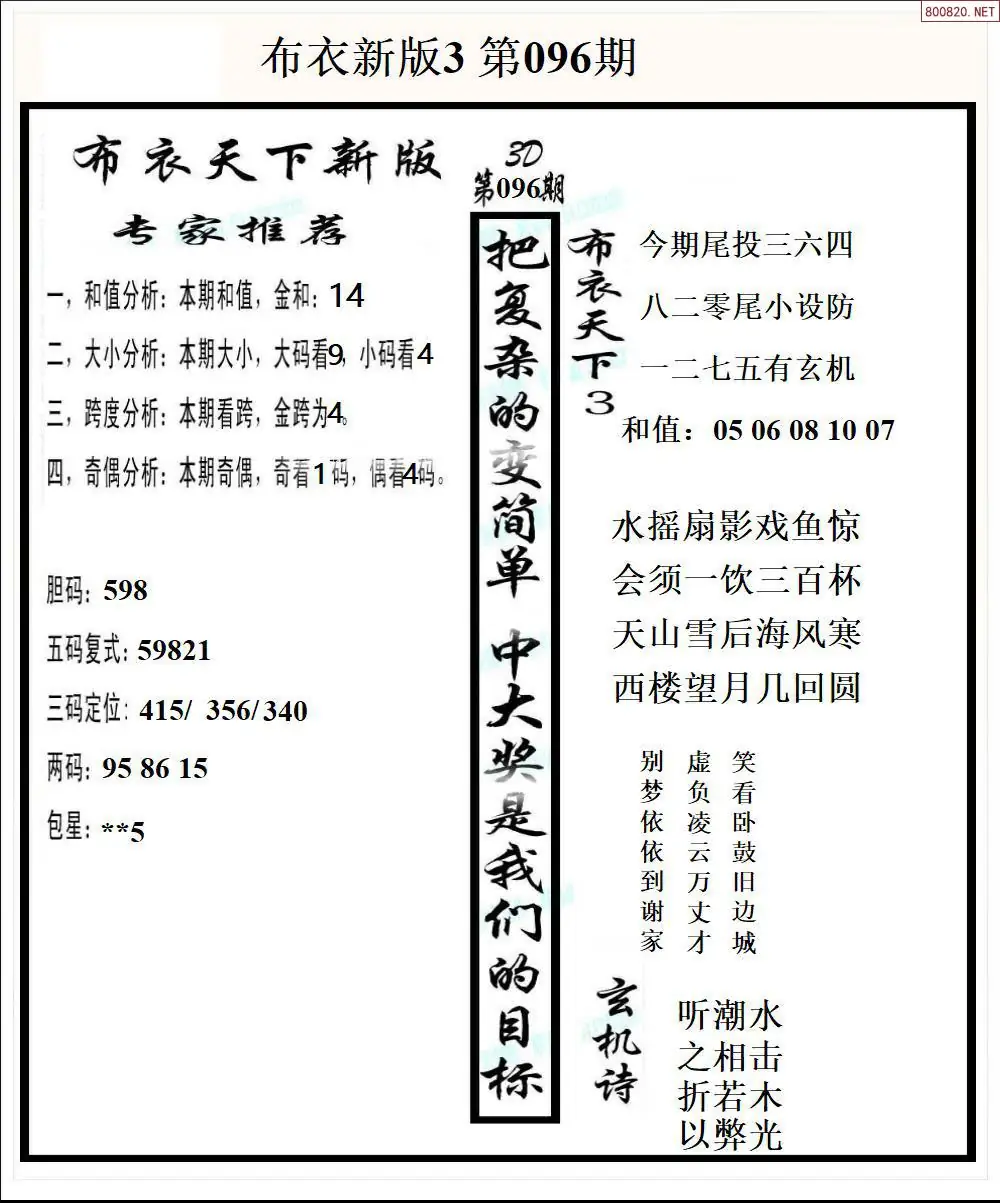 800820.NET
布衣新版3 第096期
布衣天下新版
专家推荐
一，和值分析：本期和值，金和：14
二，大小分析：本期大小，大码看9，小码看4
三，跨度分析：本期看跨，金跨为4。
四，奇偶分析：本期奇偶，奇看1码，偶看4码。
胆码：598
五码复式：59821
三码定位：415/ 356/340
两码：95 86 15
包星：**5
3D
第096期
把复杂的变简单 中大奖是我们的目标
布衣天下3
今期尾投三六四
八二零尾小设防
一二七五有玄机
和值：05 06 08 10 07
水摇扇影戏鱼惊
会须一饮三百杯
天山雪后海风寒
西楼望月几回圆
别梦依依到谢家
虚负凌云万丈才
笑看卧鼓旧边城
玄机诗
听潮水
之相击
折若木
以弊光